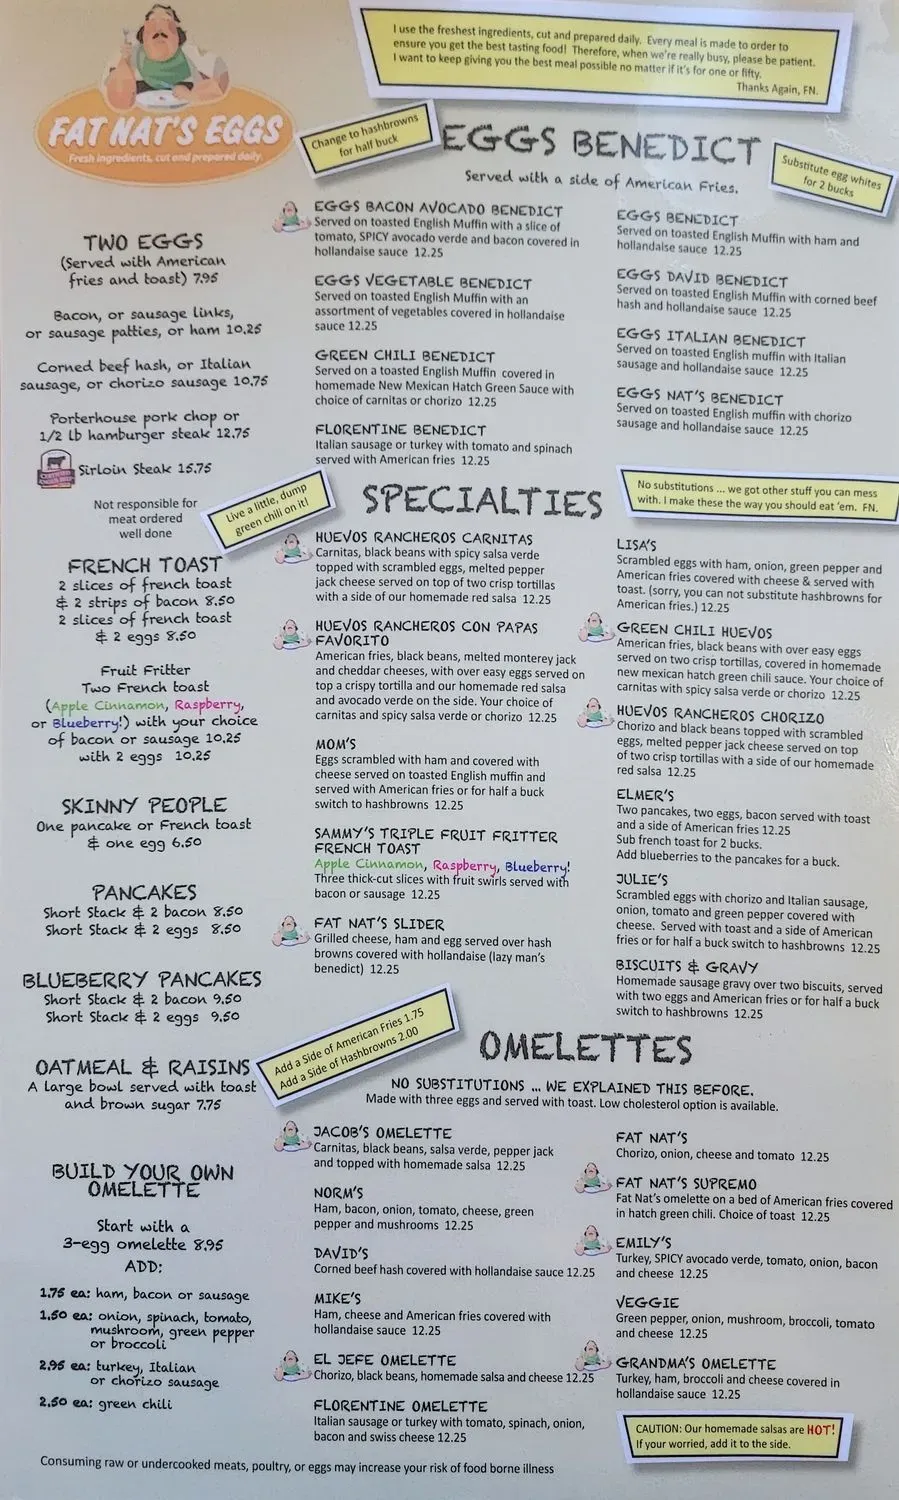 I use the freshest ingredients, cut and prepared daily. Every meal is made to order to
ensure you get the best tasting food! Therefore, when we're really busy, please be patient.
I want to keep giving you the best meal possible no matter if it's for one or fifty.
Thanks Again, FN.
FAT NAT'S EGGS
Fresh ingredients, cut and prepared daily.
TWO EGGS
(Served with American
fries and toast) 7.95
Bacon, or sausage links,
or sausage patties, or ham 10.25
Corned beef hash, or Italian
sausage, or chorizo sausage 10.75
Porterhouse pork chop or
1/2 lb hamburger steak 12.75
Sirloin Steak 15.75
Not responsible for
meat ordered
well done
FRENCH TOAST
2 slices of french toast
& 2 strips of bacon 8.50
2 slices of french toast
& 2 eggs 8.50
Fruit Fritter
Two French toast
(Apple Cinnamon, Raspberry,
or Blueberry!) with your choice
of bacon or sausage 10.25
with 2 eggs 10.25
SKINNY PEOPLE
One pancake or French toast
& one egg 6.50
PANCAKES
Short Stack & 2 bacon 8.50
Short Stack & 2 eggs 8.50
BLUEBERRY PANCAKES
Short Stack & 2 bacon 9.50
Short Stack & 2 eggs 9.50
OATMEAL & RAISINS
A large bowl served with toast
and brown sugar 7.75
BUILD YOUR OWN
OMELETTE
Start with a
3-egg omelette 8.95
ADD:
1.75 ea: ham, bacon or sausage
1.50 ea: onion, spinach, tomato,
mushroom, green pepper
or broccoli
2.95 ea: turkey, Italian
or chorizo sausage
2.50 ea: green chili
Change to hashbrowns
for half buck
EGGS BENEDICT
Served with a side of American Fries.
Substitute egg whites
for 2 bucks
EGGS BACON AVOCADO BENEDICT
Served on toasted English Muffin with a slice of
tomato, SPICY avocado verde and bacon covered in
hollandaise sauce 12.25
EGGS VEGETABLE BENEDICT
Served on toasted English Muffin with an
assortment of vegetables covered in hollandaise
sauce 12.25
GREEN CHILI BENEDICT
Served on a toasted English Muffin covered in
homemade New Mexican Hatch Green Sauce with
choice of carnitas or chorizo 12.25
FLORENTINE BENEDICT
Italian sausage or turkey with tomato and spinach
served with American fries 12.25
EGGS BENEDICT
Served on toasted English Muffin with ham and
hollandaise sauce 12.25
EGGS DAVID BENEDICT
Served on toasted English Muffin with corned beef
hash and hollandaise sauce 12.25
EGGS ITALIAN BENEDICT
Served on toasted English muffin with Italian
sausage and hollandaise sauce 12.25
EGGS NAT'S BENEDICT
Served on toasted English muffin with chorizo
sausage and hollandaise sauce 12.25
Live a little, dump
green chili on it!
SPECIALTIES
No substitutions ... we got other stuff you can mess
with. I make these the way you should eat 'em. FN.
HUEVOS RANCHEROS CARNITAS
Carnitas, black beans with spicy salsa verde
topped with scrambled eggs, melted pepper
jack cheese served on top of two crisp tortillas
with a side of our homemade red salsa 12.25
HUEVOS RANCHEROS CON PAPAS
FAVORITO
American fries, black beans, melted monterey jack
and cheddar cheeses, with over easy eggs served on
top a crispy tortilla and our homemade red salsa
and avocado verde on the side. Your choice of
carnitas and spicy salsa verde or chorizo 12.25
MOM'S
Eggs scrambled with ham and covered with
cheese served on toasted English muffin and
served with American fries or for half a buck
switch to hashbrowns 12.25
SAMMY'S TRIPLE FRUIT FRITTER
FRENCH TOAST
Apple Cinnamon, Raspberry, Blueberry!
Three thick-cut slices with fruit swirls served with
bacon or sausage 12.25
FAT NAT'S SLIDER
Grilled cheese, ham and egg served over hash
browns covered with hollandaise (lazy man's
benedict) 12.25
LISA'S
Scrambled eggs with ham, onion, green pepper and
American fries covered with cheese & served with
toast. (sorry, you can not substitute hashbrowns for
American fries.) 12.25
GREEN CHILI HUEVOS
American fries, black beans with over easy eggs
served on two crisp tortillas, covered in homemade
new mexican hatch green chili sauce. Your choice of
carnitas with spicy salsa verde or chorizo 12.25
HUEVOS RANCHEROS CHORIZO
Chorizo and black beans topped with scrambled
eggs, melted pepper jack cheese served on top
of two crisp tortillas with a side of our homemade
red salsa 12.25
ELMER'S
Two pancakes, two eggs, bacon served with toast
and a side of American fries 12.25
Sub french toast for 2 bucks.
Add blueberries to the pancakes for a buck.
JULIE'S
Scrambled eggs with chorizo and Italian sausage,
onion, tomato and green pepper covered with
cheese. Served with toast and a side of American
fries or for half a buck switch to hashbrowns 12.25
BISCUITS & GRAVY
Homemade sausage gravy over two biscuits, served
with two eggs and American fries or for half a buck
switch to hashbrowns 12.25
Add a Side of American Fries 1.75
Add a Side of Hashbrowns 2.00
OMELETTES
NO SUBSTITUTIONS ... WE EXPLAINED THIS BEFORE.
Made with three eggs and served with toast. Low cholesterol option is available.
JACOB'S OMELETTE
Carnitas, black beans, salsa verde, pepper jack
and topped with homemade salsa 12.25
NORM'S
Ham, bacon, onion, tomato, cheese, green
pepper and mushrooms 12.25
DAVID'S
Corned beef hash covered with hollandaise sauce 12.25
MIKE'S
Ham, cheese and American fries covered with
hollandaise sauce 12.25
EL JEFE OMELETTE
Chorizo, black beans, homemade salsa and cheese 12.25
FLORENTINE OMELETTE
Italian sausage or turkey with tomato, spinach, onion,
bacon and swiss cheese 12.25
FAT NAT'S
Chorizo, onion, cheese and tomato 12.25
FAT NAT'S SUPREMO
Fat Nat's omelette on a bed of American fries covered
in hatch green chili. Choice of toast 12.25
EMILY'S
Turkey, SPICY avocado verde, tomato, onion, bacon
and cheese 12.25
VEGGIE
Green pepper, onion, mushroom, broccoli, tomato
and cheese 12.25
GRANDMA'S OMELETTE
Turkey, ham, broccoli and cheese covered in
hollandaise sauce 12.25
CAUTION: Our homemade salsas are HOT!
If your worried, add it to the side.
Consuming raw or undercooked meats, poultry, or eggs may increase your risk of food borne illness